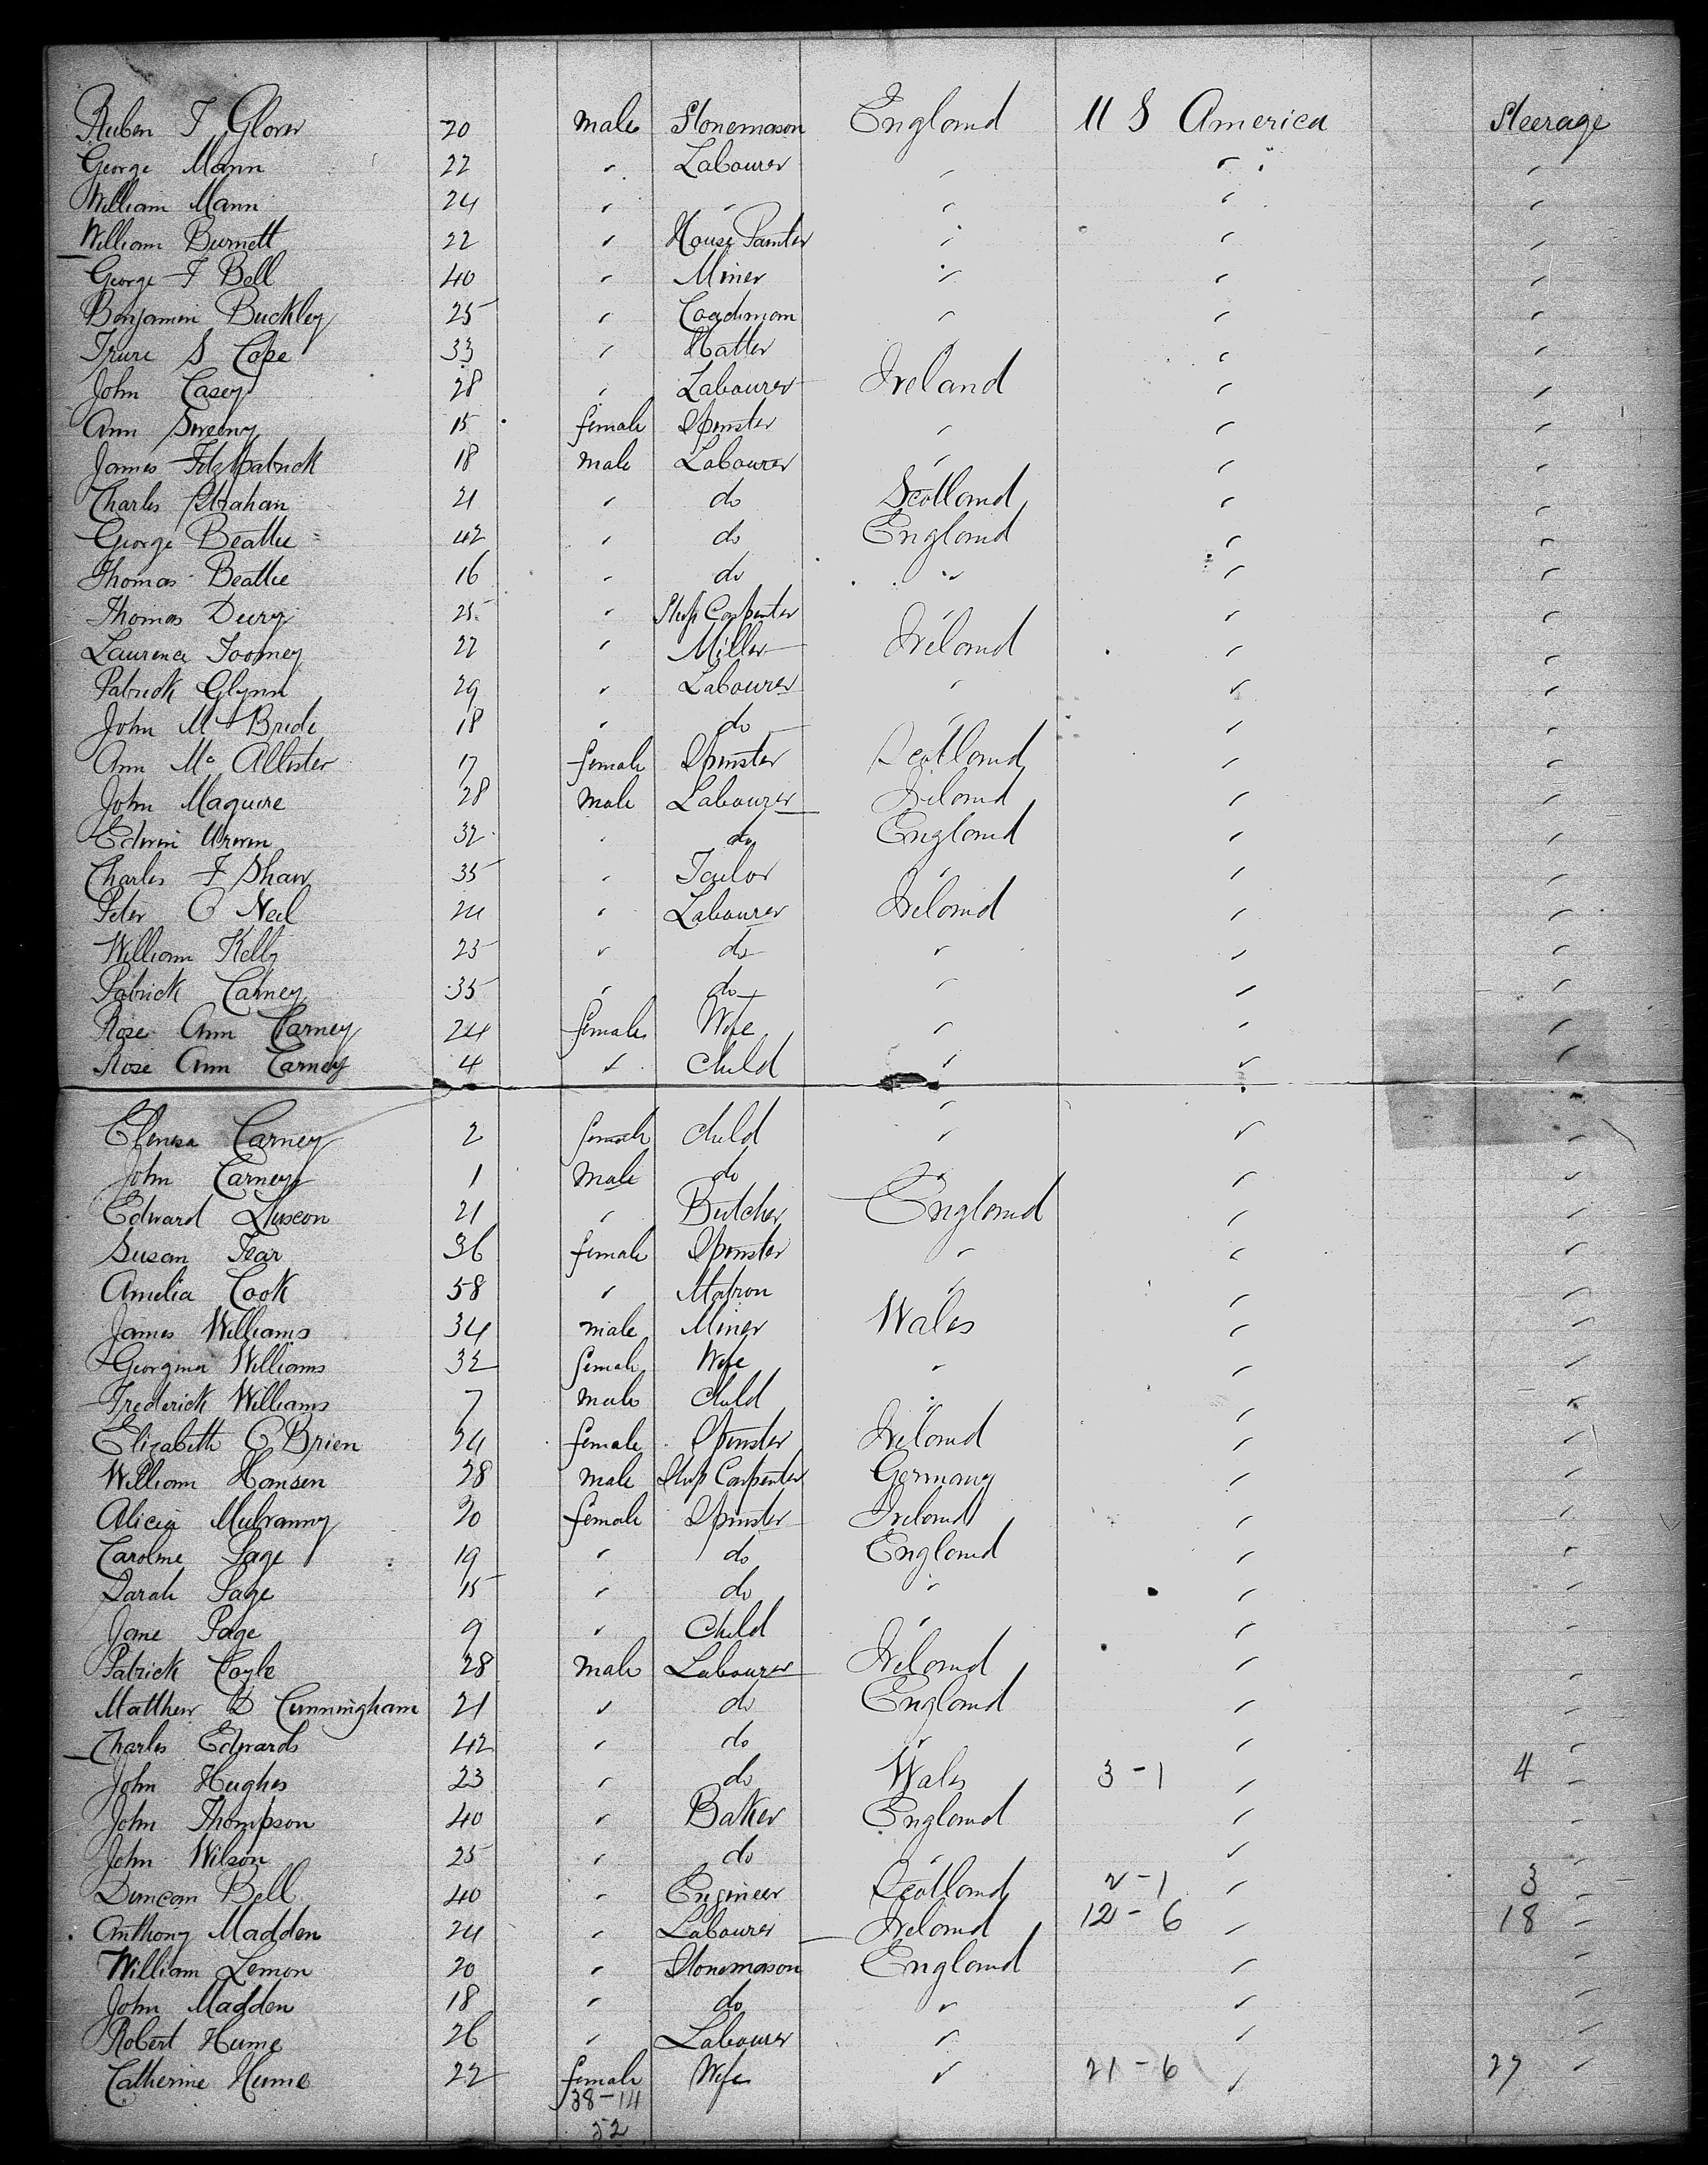 Ruben T Glover 20 male Stonemason England U S America Steerage
George Mann 22 " Labourer " " "
William Mann 24 " " " " "
William Burnett 22 " House Painter " " "
George F Bell 40 " Miner " " "
Benjamin Buckley 25 " Coachman " " "
S Cope 33 " Hatter " " "
John Casey 28 " Labourer Ireland " "
Ann Sweeny 15 female Spinster " " "
James Fitzpatrick 18 male Labourer " " "
Charles Strahan 21 " do Scotland " "
George Beattie 42 " do England " "
Thomas Beattie 16 " do " " "
Thomas Dury 25 " Ship Carpenter " " "
Laurence Toomey 22 " Miller Ireland " "
Patrick Glynn 29 " Labourer " " "
John Mc Bride 18 " do " " "
Ann Mc Allister 17 female Spinster Scotland " "
John Maguire 28 male Labourer Ireland " "
Edwin Urwin 32 " do England " "
Charles F Shaw 35 " Tailor " " "
Peter O Neil 24 " Labourer Ireland " "
William Kelly 25 " do " " "
Patrick Carney 35 " do " " "
Rose Ann Carney 24 female Wife " " "
Rose Ann Carney 4 " Child " " "
Carney 2 female Child " " "
John Carney 1 male do " " "
Edward 21 " Butcher England " "
Susan Tear 36 female Spinster " " "
Amelia Cook 58 " Matron " " "
James Williams 34 male Miner Wales " "
Georgina Williams 32 female Wife " " "
Frederick Williams 7 male Child " " "
Elizabeth O Brien 34 female Spinster Ireland " "
William Hansen 28 male Ship Carpenter Germany " "
Alicia Mulvanny 20 female Spinster Ireland " "
Caroline Page 19 " do England " "
Sarah Page 15 " do " " "
Jane Page 9 " Child " " "
Patrick Coyle 28 male Labourer Ireland " "
Matthew D Cunningham 21 " do England " "
Charles Edwards 42 " do " " "
John Hughes 23 " do Wales 3-1 " 4 "
John Thompson 40 " Baker England " "
John Wilson 25 " do " " "
Duncan Bell 40 " Engineer Scotland 2-1 " 3 "
Anthony Madden 24 " Labourer Ireland 12-6 " 18 "
William Lemon 20 " Stonemason England " "
John Madden 18 " do " " "
Robert Hume 26 " Labourer " " "
Catherine Hume 22 female Wife " 21-6 " 27 "
38-14
52